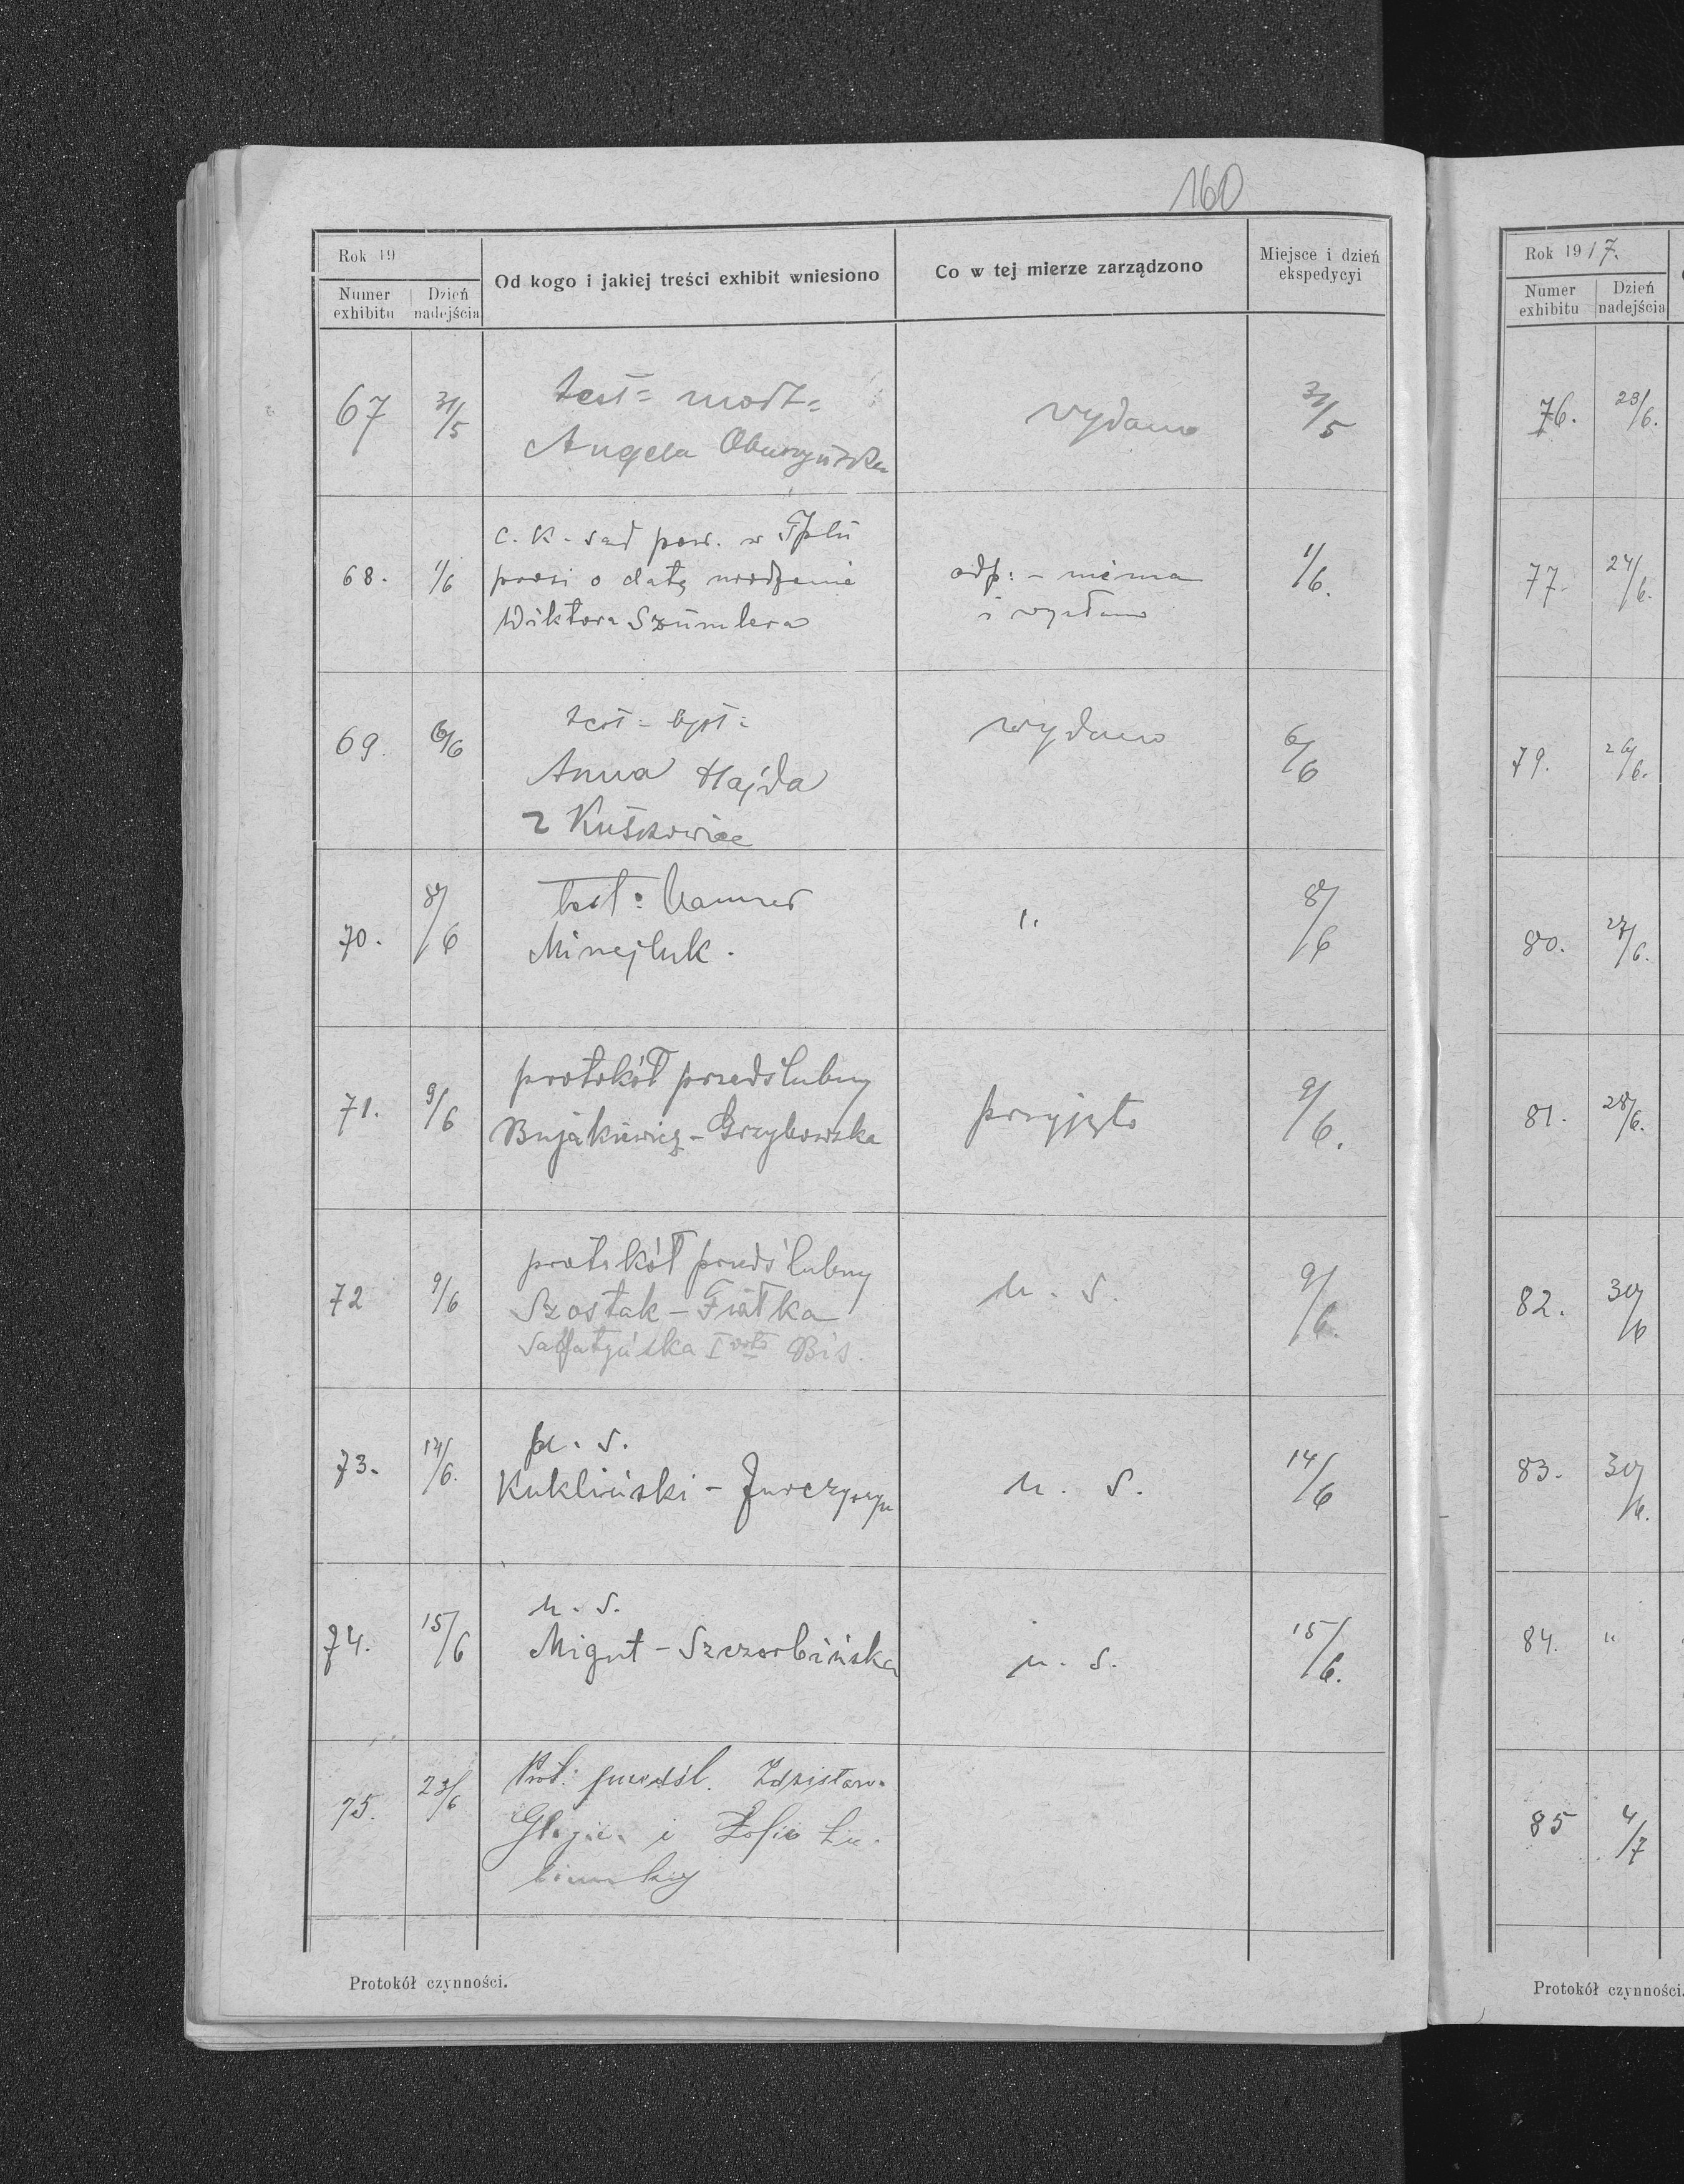 160
Rok 19
Numer exhibitu
Dzień nadejścia
Od kogo i jakiej treści exhibit wniesiono
Co w tej mierze zarządzono
Miejsce i dzień ekspedycyi
67 31/5 test= mort=
Angela wydano 31/5
c. k. sąd pow. w Tplu
68. 1/6 prosi o datę urodzenia odp: - niema 1/6.
Wiktora Szümlera i wysłano
69. 6/6 test= bapt= wydano 6/6
Anna Hajda
z Kutkowiec
70. 8/6 test: " 8/6
Minejluk.
71. 9/6 protokół przedślubny przyjęto 9/6.
Bujakiewicz - Grzybowska
72 9/6 protokół przedślubny u. s. 9/6.
Szostak - Fiałka
I voto Bis.
73. 14/6. p. s.
Kukliński - Jurczyszyn u. s. 14/6
74. 15/6 u. s.
Migut - Szczerbińska u. s. 15/6.
75. 23/6 Prot: przedśl. Zdzisława
i Zofia
Protokół czynności.
Rok 1917.
Numer exhibitu
Dzień nadejścia
76. 23/6.
77. 24/6.
79. 26/6.
80. 27/6.
81. 28/6.
82. 30/6
83. 30/6.
84. "
85 4/7
Protokół czynności.